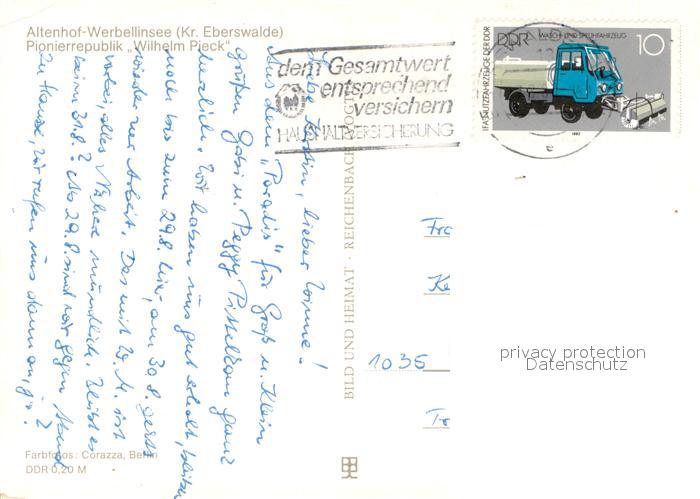 Altenhof-Werbellinsee (Kr. Eberswalde)
Pionierrepublik „Wilhelm Pieck"
dem Gesamtwert
entsprechend
versichern
HAUSHALTVERSICHERUNG
DDR
WASCH- UND SPRÜHFAHRZEUG
10
IFA-NUTZFAHRZEUGE DER DDR
1982
Liebe, lieber
Aus dem „Paradis" für Groß u. Klein
grüßen Gabi u. Peggy ganz
herzlich. Wir haben uns gut erholt, bleiben
noch bis zum 29.8. hier, am 30.8. geht's
wieder zur Arbeit. Das mit ist
vorbei, alles Nähere mündlich. Bleibt es
beim 31.8.? Ab 29.8. sind wir gegen Abend
zu Hause, wir rufen uns dann an, ja?
BILD UND HEIMAT · REICHENBACH
Fr
Ke
1035
Tr
privacy protection
Datenschutz
Farbfotos: Corazza, Berlin
DDR 0,20 M